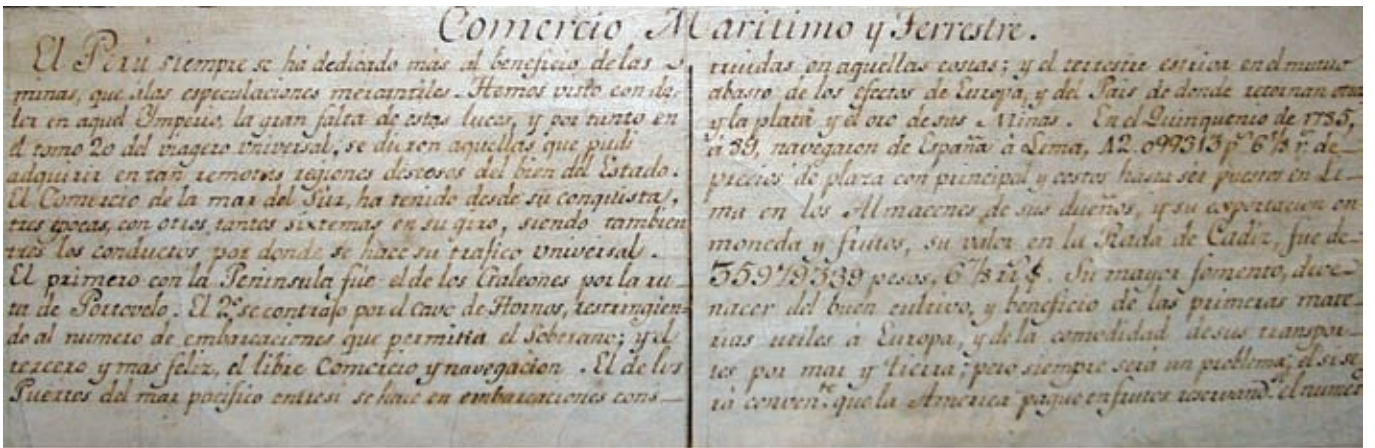 Comercio Maritimo y Terrestre.
El Perú siempre se ha dedicado más al beneficio de las
minas, que alas especulaciones mercantiles. Hemos visto con do-
lor en aquel Ymperio, la gran falta de estas luces, y por tanto en
el tomo 20 del viagero vniversal, se dieron aquellas que pudi
adquirir en tan remotas regiones deseoso del bien del Estado.
El Comercio de la mar del Sur, ha tenido desde su conquista,
tres epocas, con otros tantos sixtemas en su giro, siendo tambien
tres los conductos por donde se hace su trafico vniversal.
El primero con la Peninsula fue el de los Galeones por la ru-
ta de Portovelo. El 2º se contrajo por el Cavo de Hornos, restringien-
do al numero de embarcaciones que permitia el Soberano; y el
tercero y mas feliz, el libre Comercio y navegacion. El de los
Puertos del mar pacifico entresi se hace en embarcaciones cons-
truidas en aquellas costas; y el terrestre estriva en el mutuo
abasto de los efectos de Europa, y del Pais de donde retornan otros
y la plata y el oro de sus Minas. En el Quinquenio de 1785,
á 89, navegaron de España à Lima, 42.099313 p.s 6⅛ r.s de
precios de plaza con principal y costos hasta ser puestos en Li-
ma en los Almacenes de sus dueños, y su exportacion en
moneda y frutos, su valor en la Rada de Cadiz, fue de
35979339 pesos, 6⅛ r.s Su mayor fomento, deve
nacer del buen cultivo, y beneficio de las primeras mate-
rias utiles à Europa, y de la comodidad de sus transpor-
tes por mar y tierra; pero siempre será un problema, el si se-
rá conven.te que la America pague en frutos reservand.o el nume